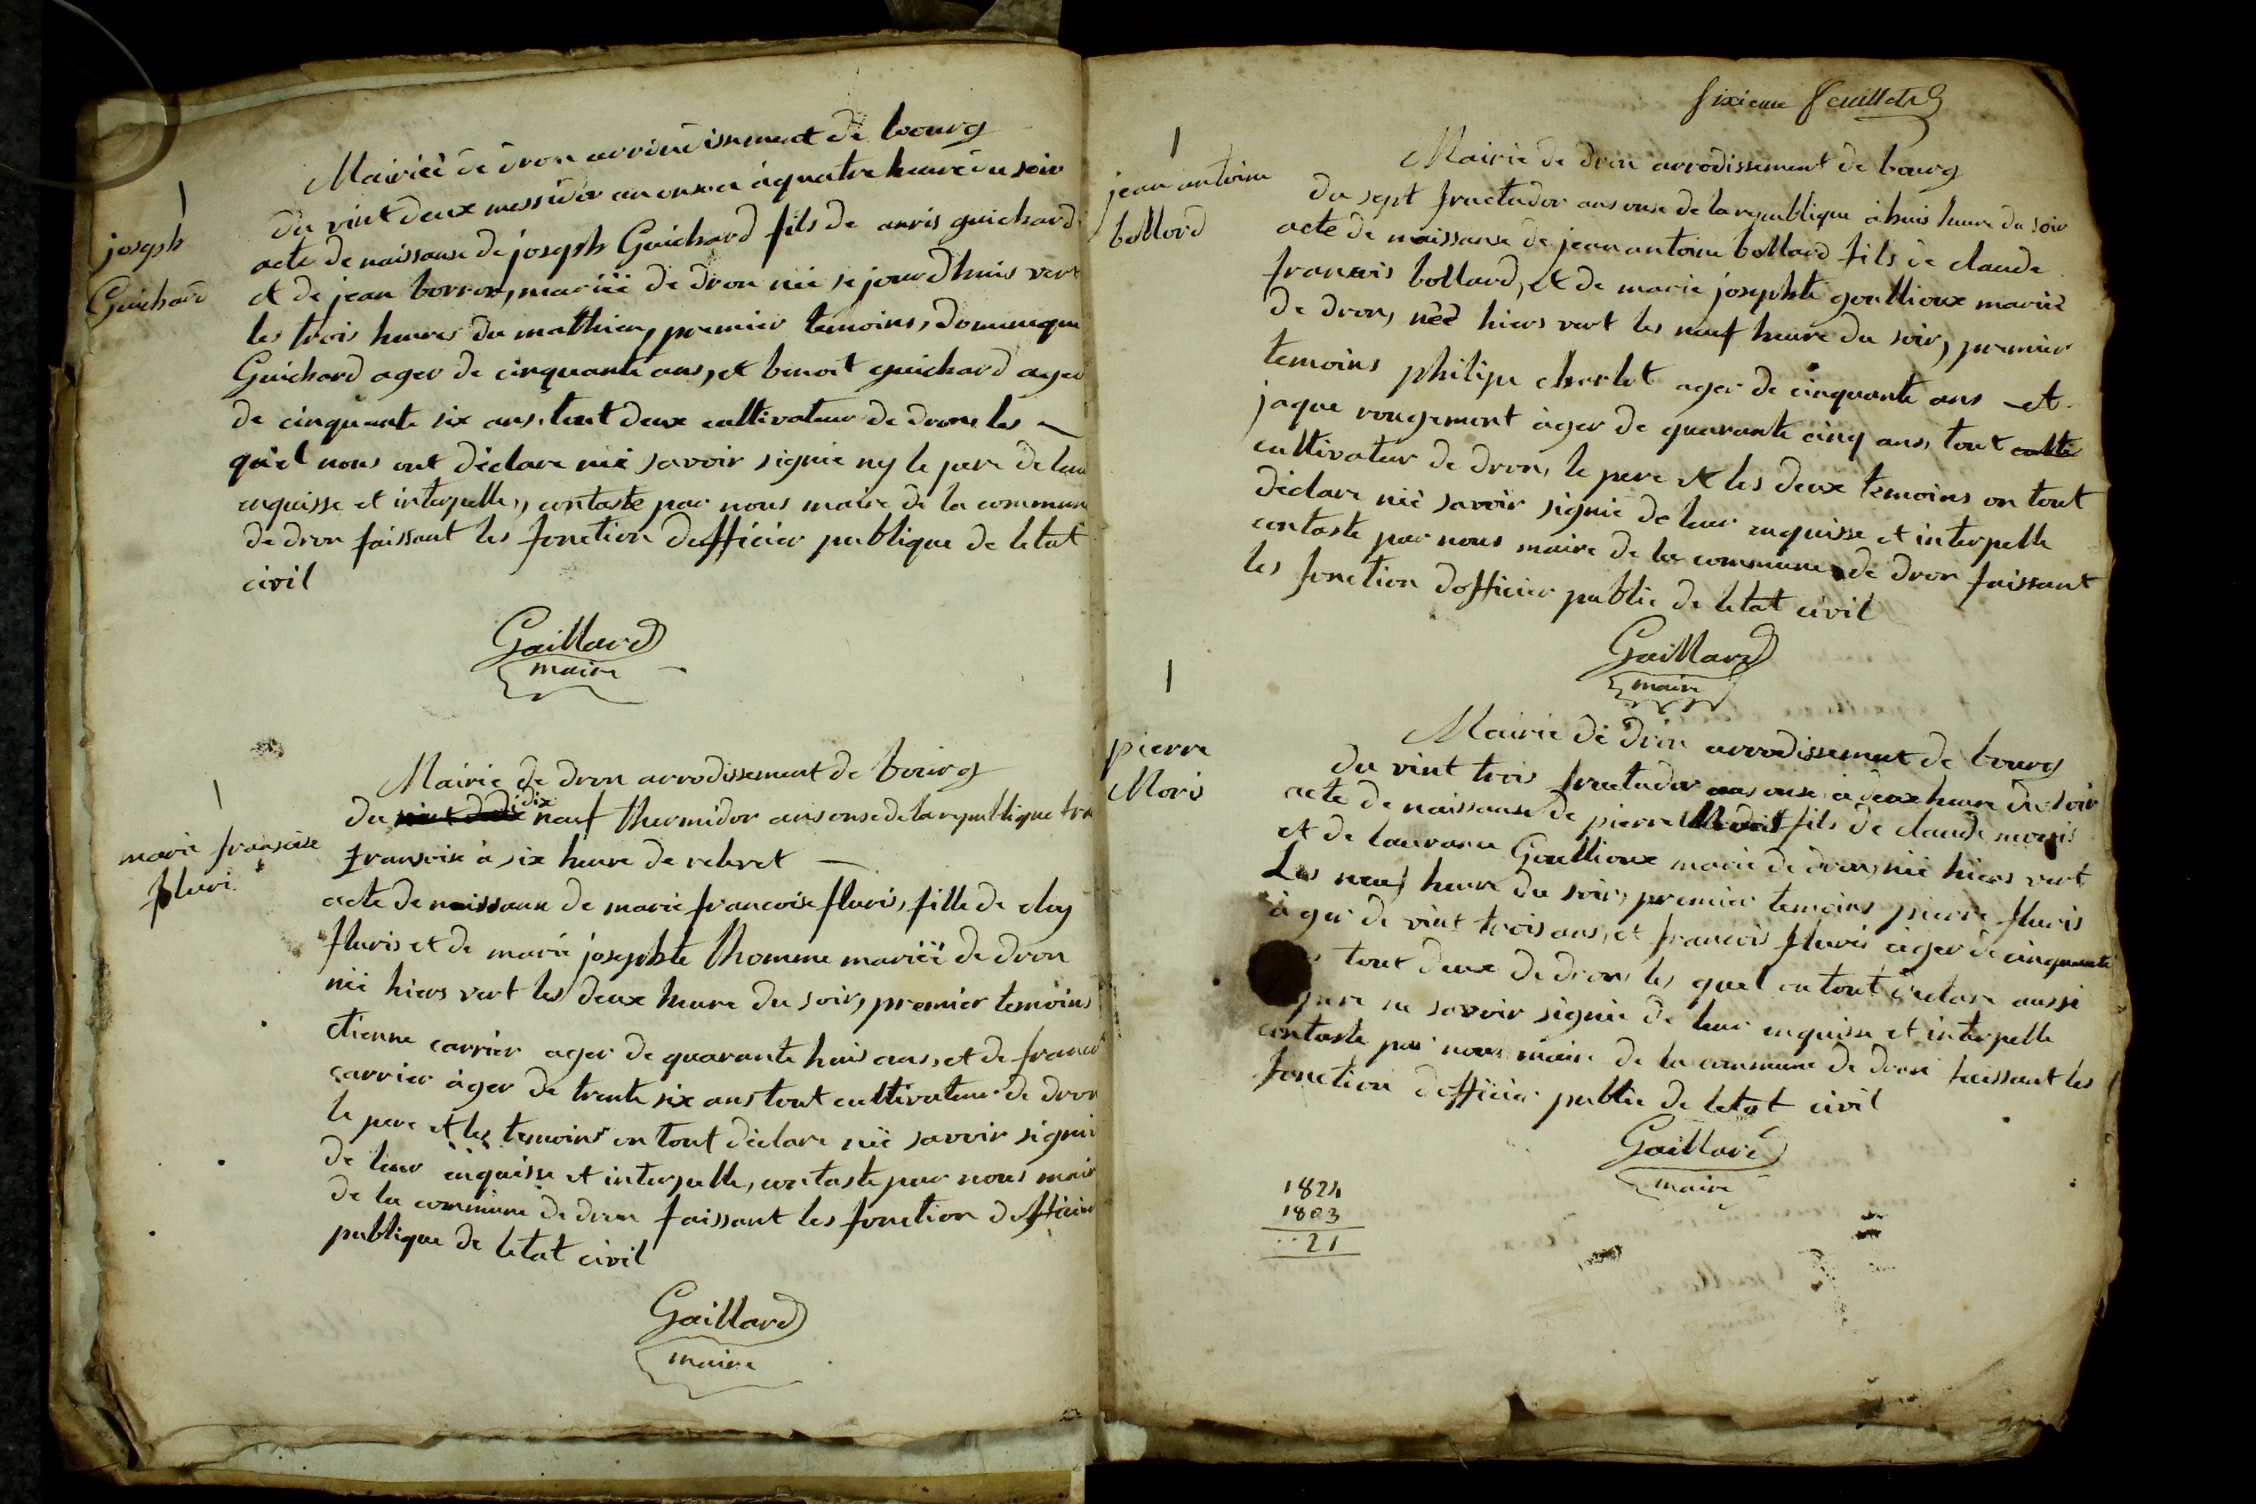 joseph
Guichard
Mairieè de dron arrondissement de bourg
du vint deux messidor an onse a à quatre heure du soir
acte de naissanse de joseph Guichard fils de anris guichard
et de jean borron, mariéé de dron néé se jourdhuis vert
les trois heures du mathien, premier temoins, domineque
Guichard ager de cinquante ans, et benoit guichard ager
de cinquante six ans, tout deux cultivateur de dron, les
quel nous ont déclare néé savoir signie ny le pere de leur
enquisse et interpelle, contaste par nous maire de la commune
de dron faissant les fonction dofficier publique de letat
civil
Gaillard
maire
marie fransoise
fluri
Mairie de dron arrodissement de bourg
du dix neuf thermidor ans onse de la republique
fransoise à six heure de releret
acte de naissanse de marie francoise fluris, fille de eloy
fluris et de marie josephte thomme mariéé de dron
néé hiers vert les deux heure du soir, premier temoins
etienne carrier ager de quarante huis ans, et de franc
carrier àger de trente six ans tout cultivateur de dron
le pere et les temoins on tout déclare néé savoir signié
de leur enquisse et interpelle, contaste par nous maire
de la commune de dron faissant les fonction dofficier
publique de letat civil
Gaillard
maire
sixieme feuillet
jean antoine
bollard
Mairie de dron arrodissement de bourg
du sept fructador ans onse de la republique à huis heure du soir
acte de naissanse de jean antoine bollard fils de claude
francois bollard, et de marie josephte goullioux mariéé
de dron, néé hiers vert les neuf heure du soir, premier
temoins philipe charlet ager de cinquante ans et
jaque rougemont àger de quarante cinq ans, tout
cultivateur de dron, le pere et les deux temoins on tout
déclare néé savoir signié de leur enquisse et interpelle
contaste par nous maire de la commune de dron faissant
les fonction dofficier public de letat civil
Gaillard
maire
pierre
Moris
Mairie de dron arrodissement de bourg
du vint trois fructador ans onse à deux heure du soir
acte de naissanse de pierre fils de claude moris
et de lauranse Goullioux marié de dron, néé hiers vert
Les neuf heure du soir, premier temoins pierre fluris
àger de vint trois ans, et francois fluris àger de cinquante
tout deux de dron, les quel on tout déclare aussi
pere ne savoir signié de leur enquisse et interpelle
contaste par nous maire de la commune de dron faissant les
fonction dofficier public de letat civil
Gaillard
maire
1824
1803
21